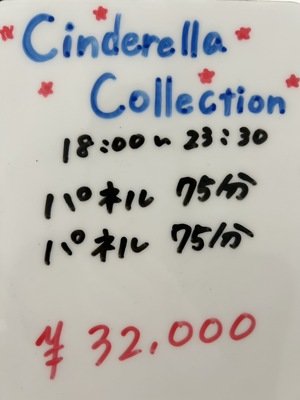 Cinderella
Collection
18:00~23:30
パネル 75分
パネル 75分
¥32,000